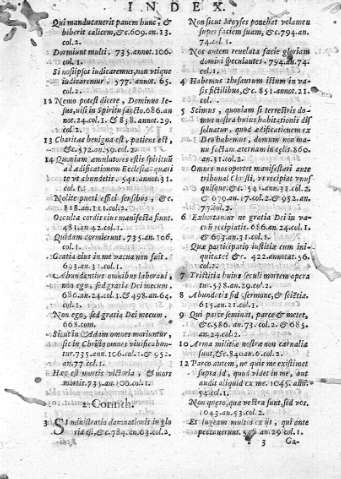 INDEX.
Qui manducauerit panem hunc, &
biberit calicem, &c. 609. an. 13.
col. 2.
Dormiunt multi. 735. annot. 106.
col. 1.
Si nosipsos iudicaremus, non vtique
iudicaremur. 577. annot. 65.
col. 2.
12 Nemo potest dicere, Dominus Ie-
sus, nisi in Spiritu sancto. 686. an
not. 24. col. 1. & 838. annot. 29.
col. 2.
13 Charitas benigna est, patiens est,
&c. 572. an. 59. col. 2.
14 Quoniam æmulatores estis spirituū
ad ædificationem Ecclesiæ quærite
vt abundetis. 541. annot. 31.
col. 2.
Nolite pueri effici sensibus, &c.
818. an. 111. col. 2.
Occulta cordis eius manifesta sunt.
481. an. 42. col. 1.
15 Quidam dormierunt. 735. an. 106.
col. 1.
Gratia eius in me vacua non fuit.
693. an. 31. col. 1.
Abundantius omnibus laboraui,
non ego, sed gratia Dei mecum.
686. an. 24. col. 1. & 498. an. 64.
col. 2.
Non ego, sed gratia Dei mecum.
668. com.
Sicut in Adam omnes moriuntur,
sic in Christo omnes viuificabun-
tur. 735. an. 106. col. 1. & 952.
an. 77. col. 1.
mortis. 735. an. 106. col. 1.
2. Corinth.
3 SI ministratio damnationis in glo
ria est, &c. 784. an. 63. col. 2.
Non sicut Moyses ponebat velamen
super faciem suam, &c. 794. an.
74. col. 1.
Nos autem reuelata facie gloriam
domini speculantes. 794. an. 74.
col. 1.
4 Habemus thesaurum istum in va-
sis fictilibus, &c. 851. annot. 21.
col. 1.
5 Scimus, quoniam si terrestris do-
mus nostra huius habitationis dis
soluatur, quod ædificationem ex
Deo habemus, domum non ma-
nu factam æternam in cælis. 860.
an. 31. col. 2.
Omnes nos oportet manifestari ante
tribunal Christi, vt recipiat vnus
quisque, &c. 541. ann. 31. col. 2
& 679. an. 17. col. 2. & 952. an.
77. col. 2.
6 Exhortamur ne gratia Dei in va-
cuū recipiatis. 686. an. 24. col. 1.
& 693. an. 31. col. 1.
Quæ participatio iustitiæ cum ini-
quitate? &c. 422. annotat. 56.
col. 2.
7 Tristitia huius seculi mortem opera
tur. 538. an. 29. col. 2.
8 Abundetis sed sermone, & scientia.
613. an. 21. col. 1.
9 Qui parce seminat, parce & metet,
&c. 586. an. 73. col. 2. & 685.
an. 24. col. 2.
10 Arma militiæ nostræ non carnalia
sunt, &c. 840. an. 6. col. 2.
12 Parco autem, ne quis me existimet
supra id, quod videt in me, aut
audit aliquid ex me. 1045. ann.
54. col. 1.
Non quæro, quæ vestra sunt, sed vos.
1043. an. 53. col. 2.
Et lugeam multos ex iis, qui ante
peccauerunt. 596. an. 29. col. 1.
3 Ga-